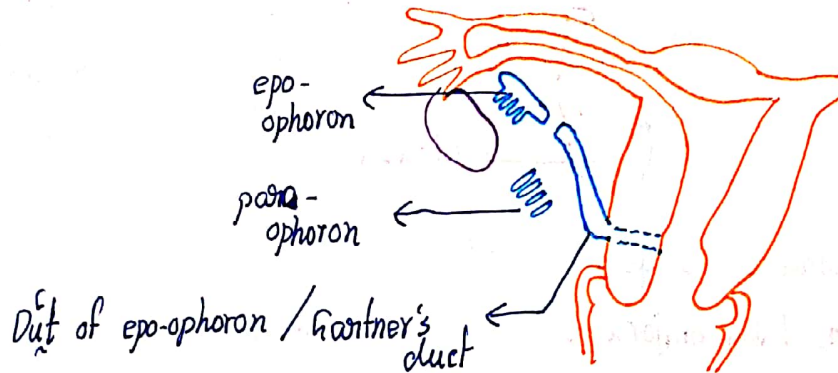 epo-
ophoron
para-
ophoron
Duct of epo-ophoron / Gartner's
duct